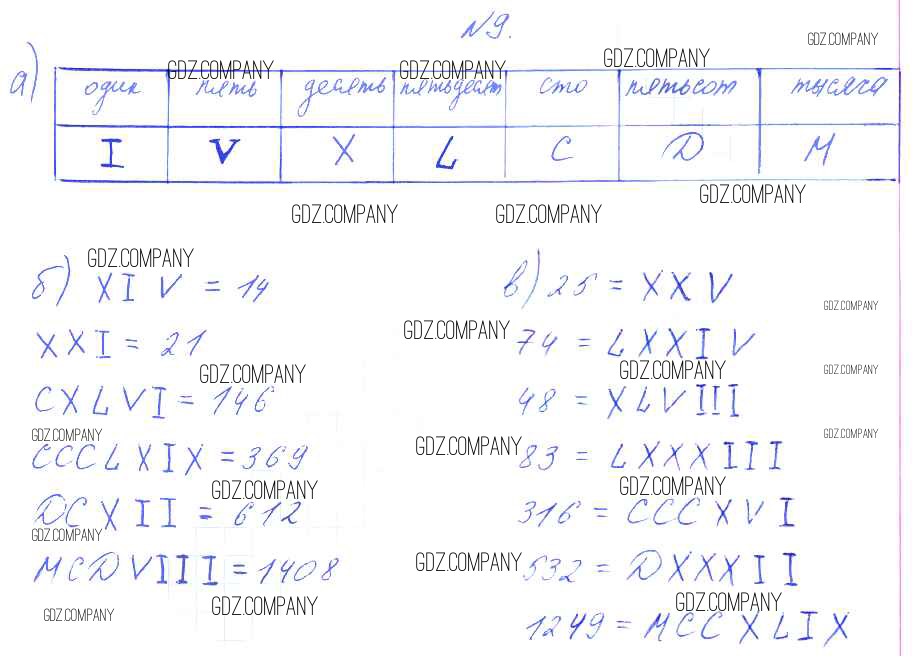 №9.
GDZ.COMPANY
а)
GDZ.COMPANY GDZ.COMPANY GDZ.COMPANY
один пять десять пятьдесят сто пятьсот тысяча
I V X L C D M
GDZ.COMPANY GDZ.COMPANY GDZ.COMPANY
GDZ.COMPANY
б) XIV = 14
XXI = 21
GDZ.COMPANY
CXLVI = 146
GDZ.COMPANY
CCCLXIX = 369
GDZ.COMPANY
DCXII = 612
GDZ.COMPANY
MCDVIII = 1408
GDZ.COMPANY GDZ.COMPANY
в) 25 = XXV
GDZ.COMPANY
GDZ.COMPANY
74 = LXXIV
GDZ.COMPANY GDZ.COMPANY
48 = XLVIII
GDZ.COMPANY
GDZ.COMPANY
83 = LXXXIII
GDZ.COMPANY
316 = CCCXVI
GDZ.COMPANY
532 = DXXXII
GDZ.COMPANY
1249 = MCCXLIX